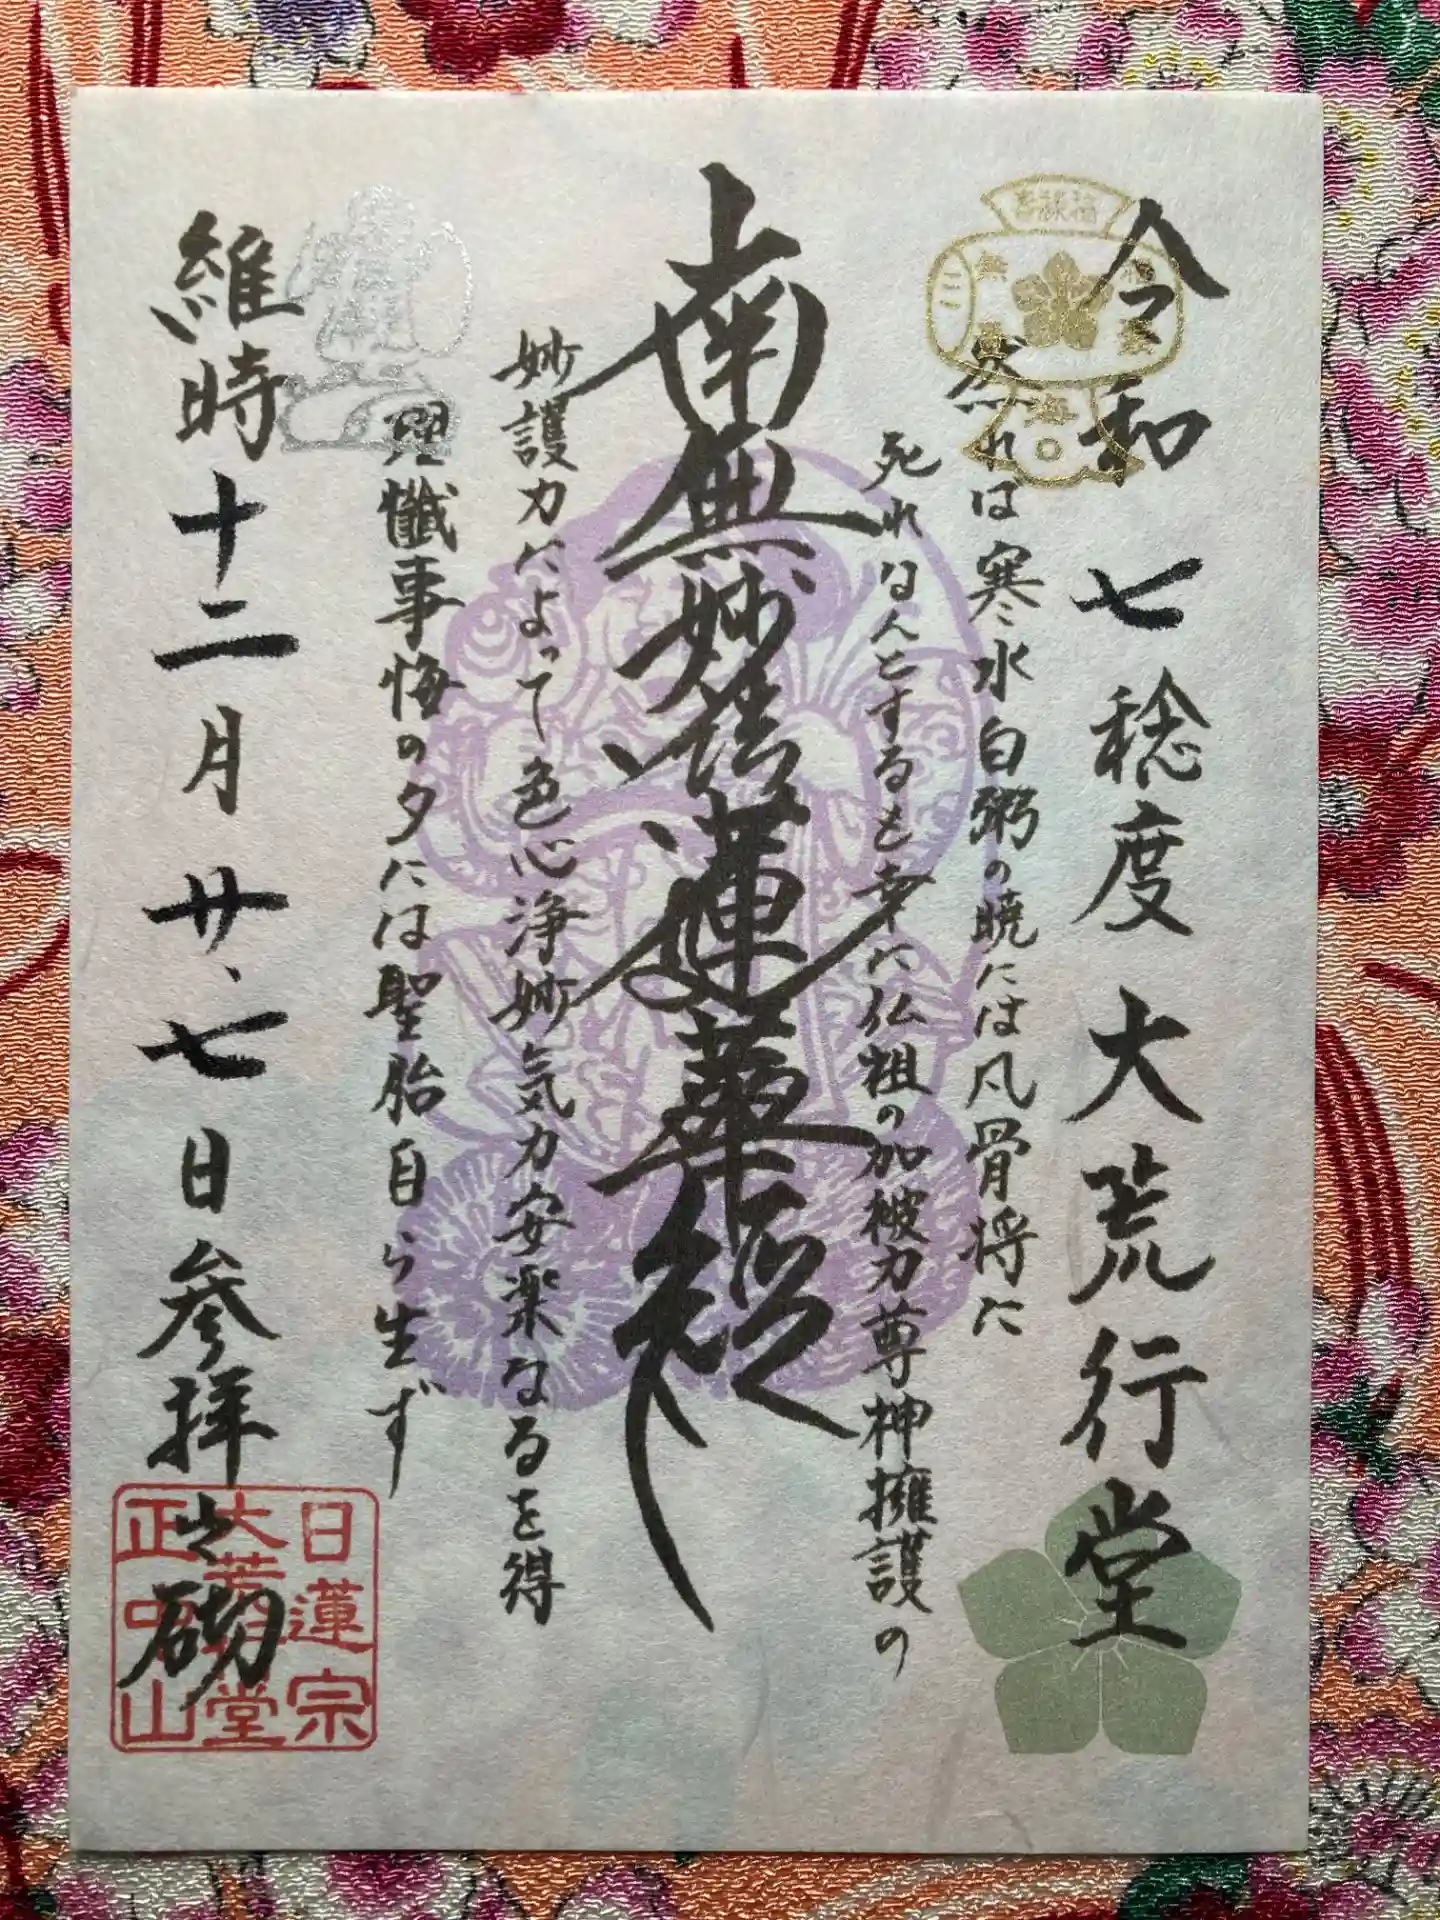 令和七稔度大荒行堂
然れは寒水白粥の暁には凡骨将に
死れなんとするも幸に仏祖の加被力尊神擁護の
南無妙法蓮華経
妙護力によって色心浄妙気力安楽なるを得
理懺事悔の夕には聖胎自ら生ず
維時十二月廿七日参拝之砌
日蓮宗
大荒行堂
正中山
福禄寿
海